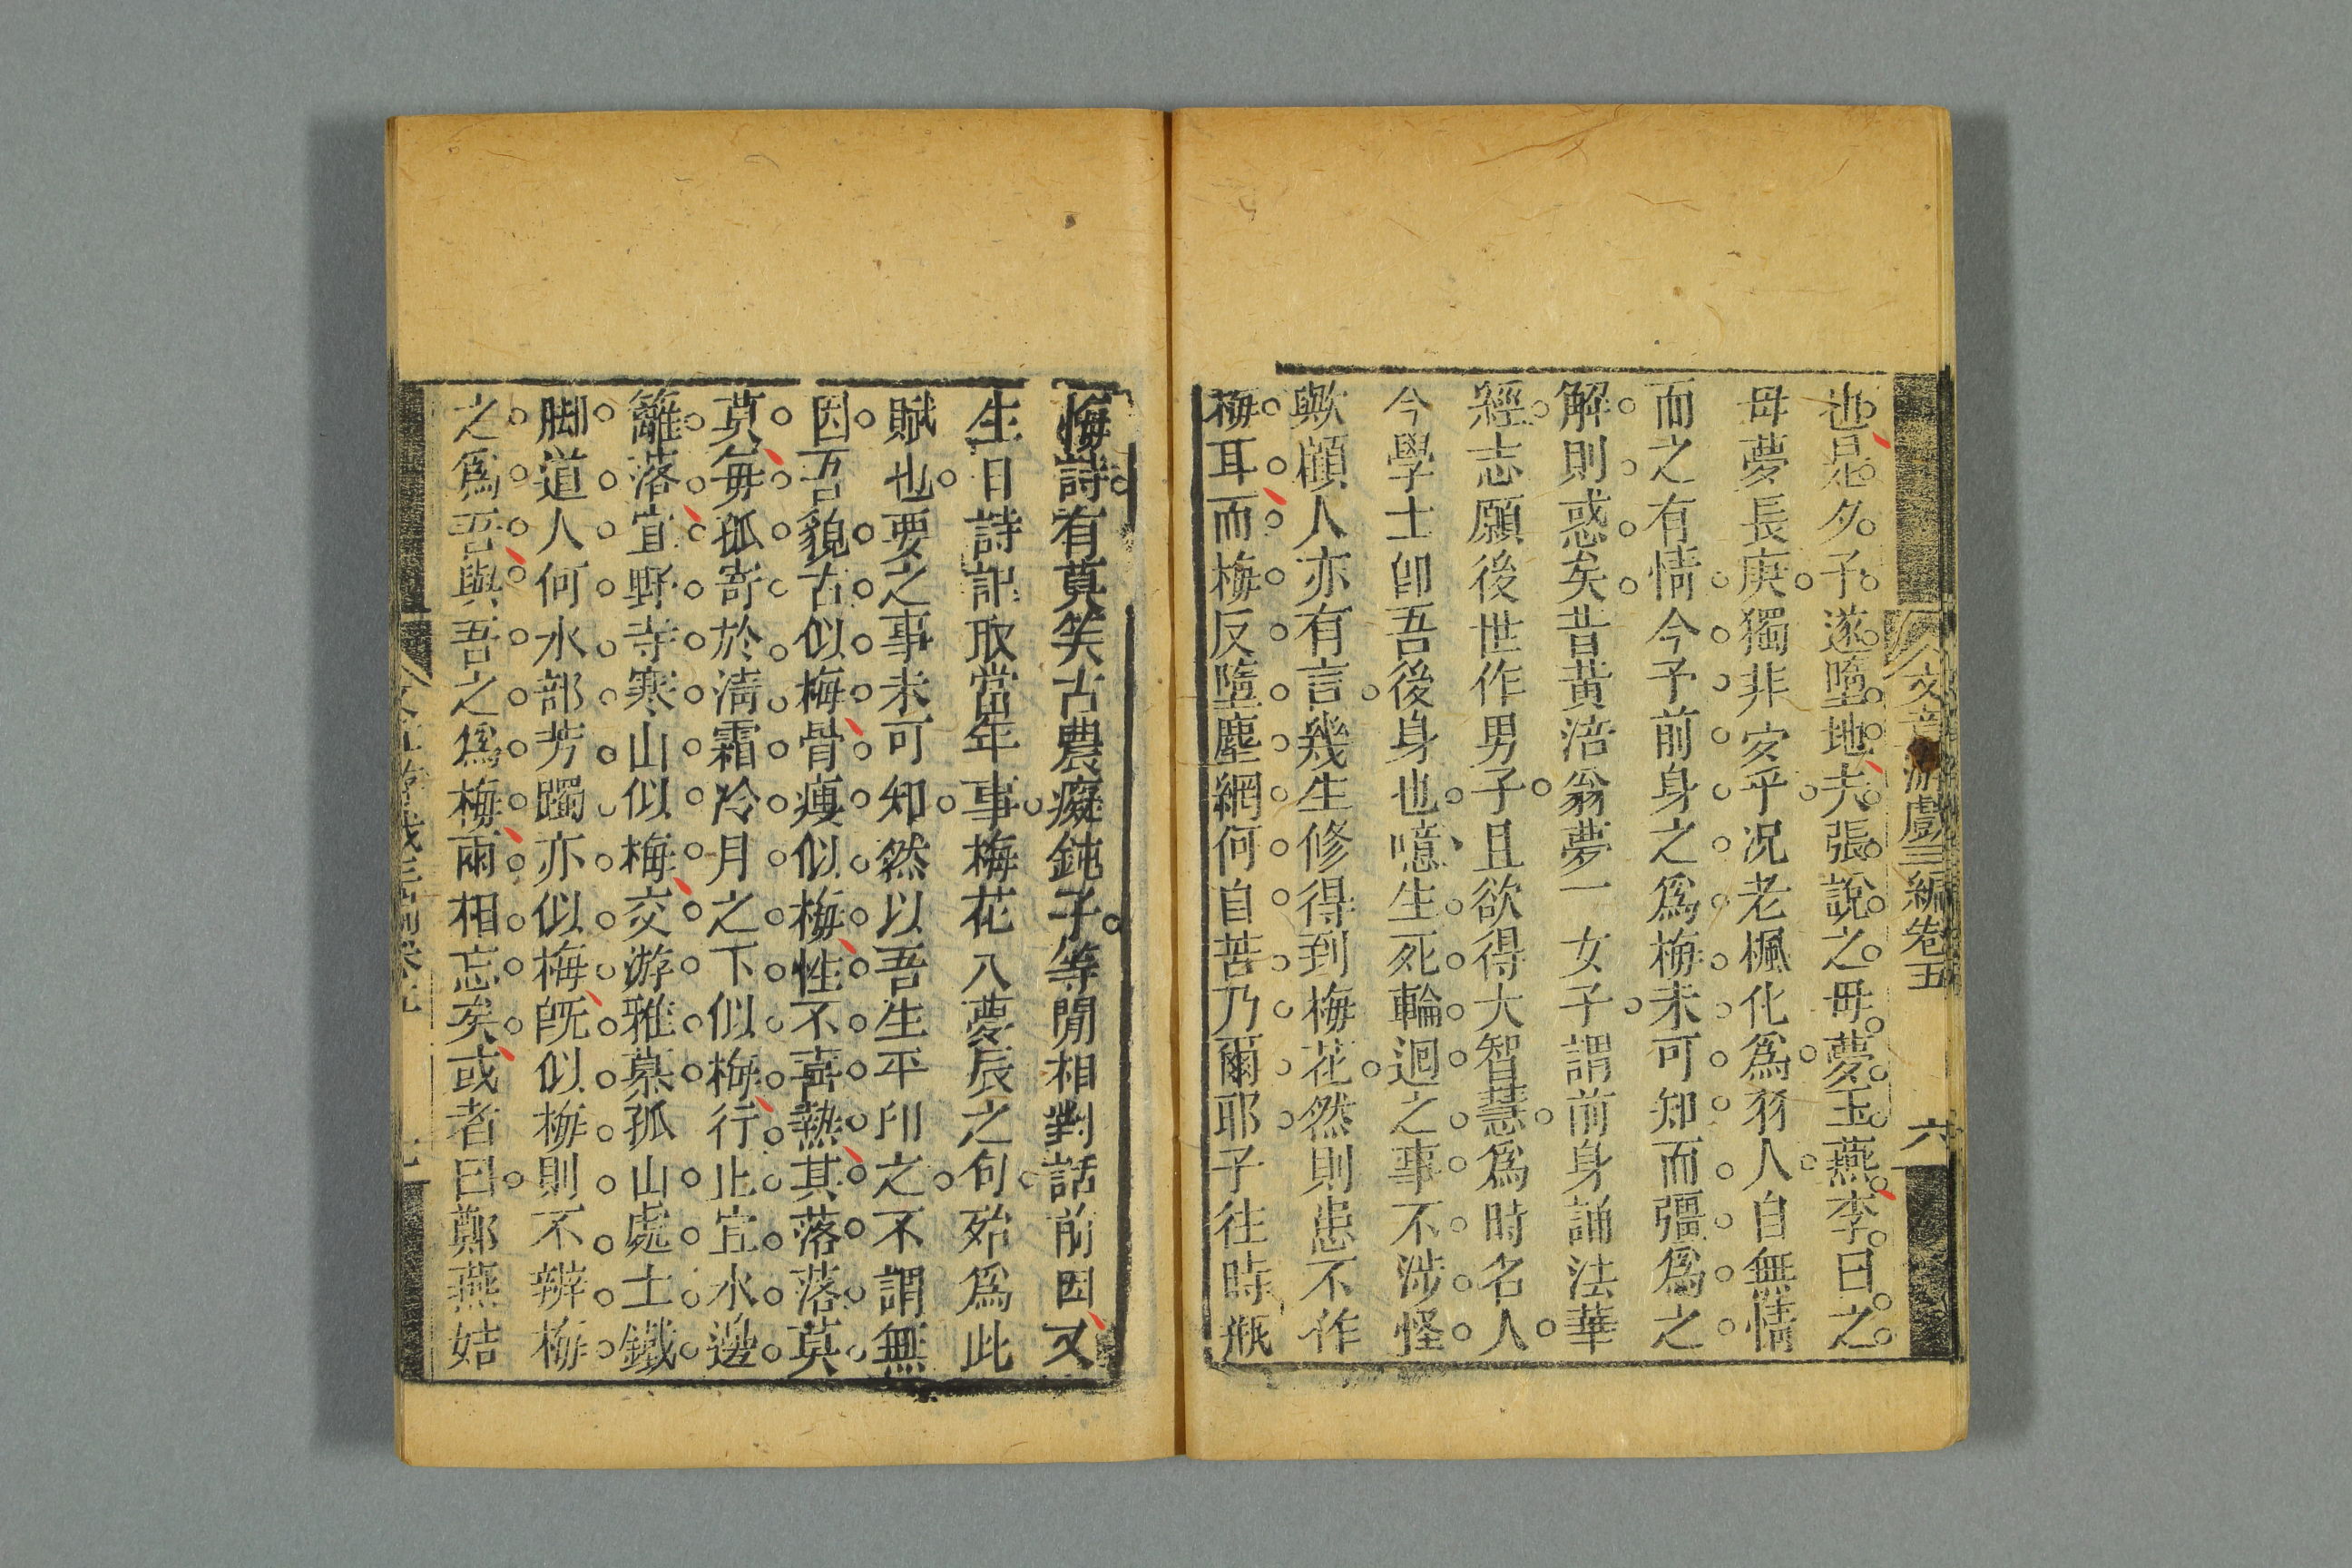 文章游戲三編卷五
六
也是夕子遂墮地夫張說之母夢玉燕李白之
母夢長庚獨非妄乎况老楓化爲羽人自無情
而之有情今予前身之爲梅未可知而彊爲之
解則惑矣昔黃涪翁夢一女子謂前身誦法華
經志願後世作男子且欲得大智慧爲時名人
今學士卽吾後身也噫生死輪迴之事不涉怪
歟顧人亦有言幾生修得到梅花然則患不作
梅耳而梅反墮塵網何自苦乃爾耶子往時瓶
梅詩有莫笑古農癡鈍子等閒相對話前因又
生日詩記取當年事梅花入夢辰之句殆爲此
賦也要之事未可知然以吾生平印之不謂無
因吾貌古似梅骨瘦似梅性不喜熱其落落莫
莫每孤寄於淸霜冷月之下似梅行止宜水邊
籬落宜野寺寒山似梅交游雅慕孤山處士鐵
脚道人何水部芳躅亦似梅旣似梅則不辨梅
之爲吾與吾之爲梅兩相忘矣或者曰鄭燕姞